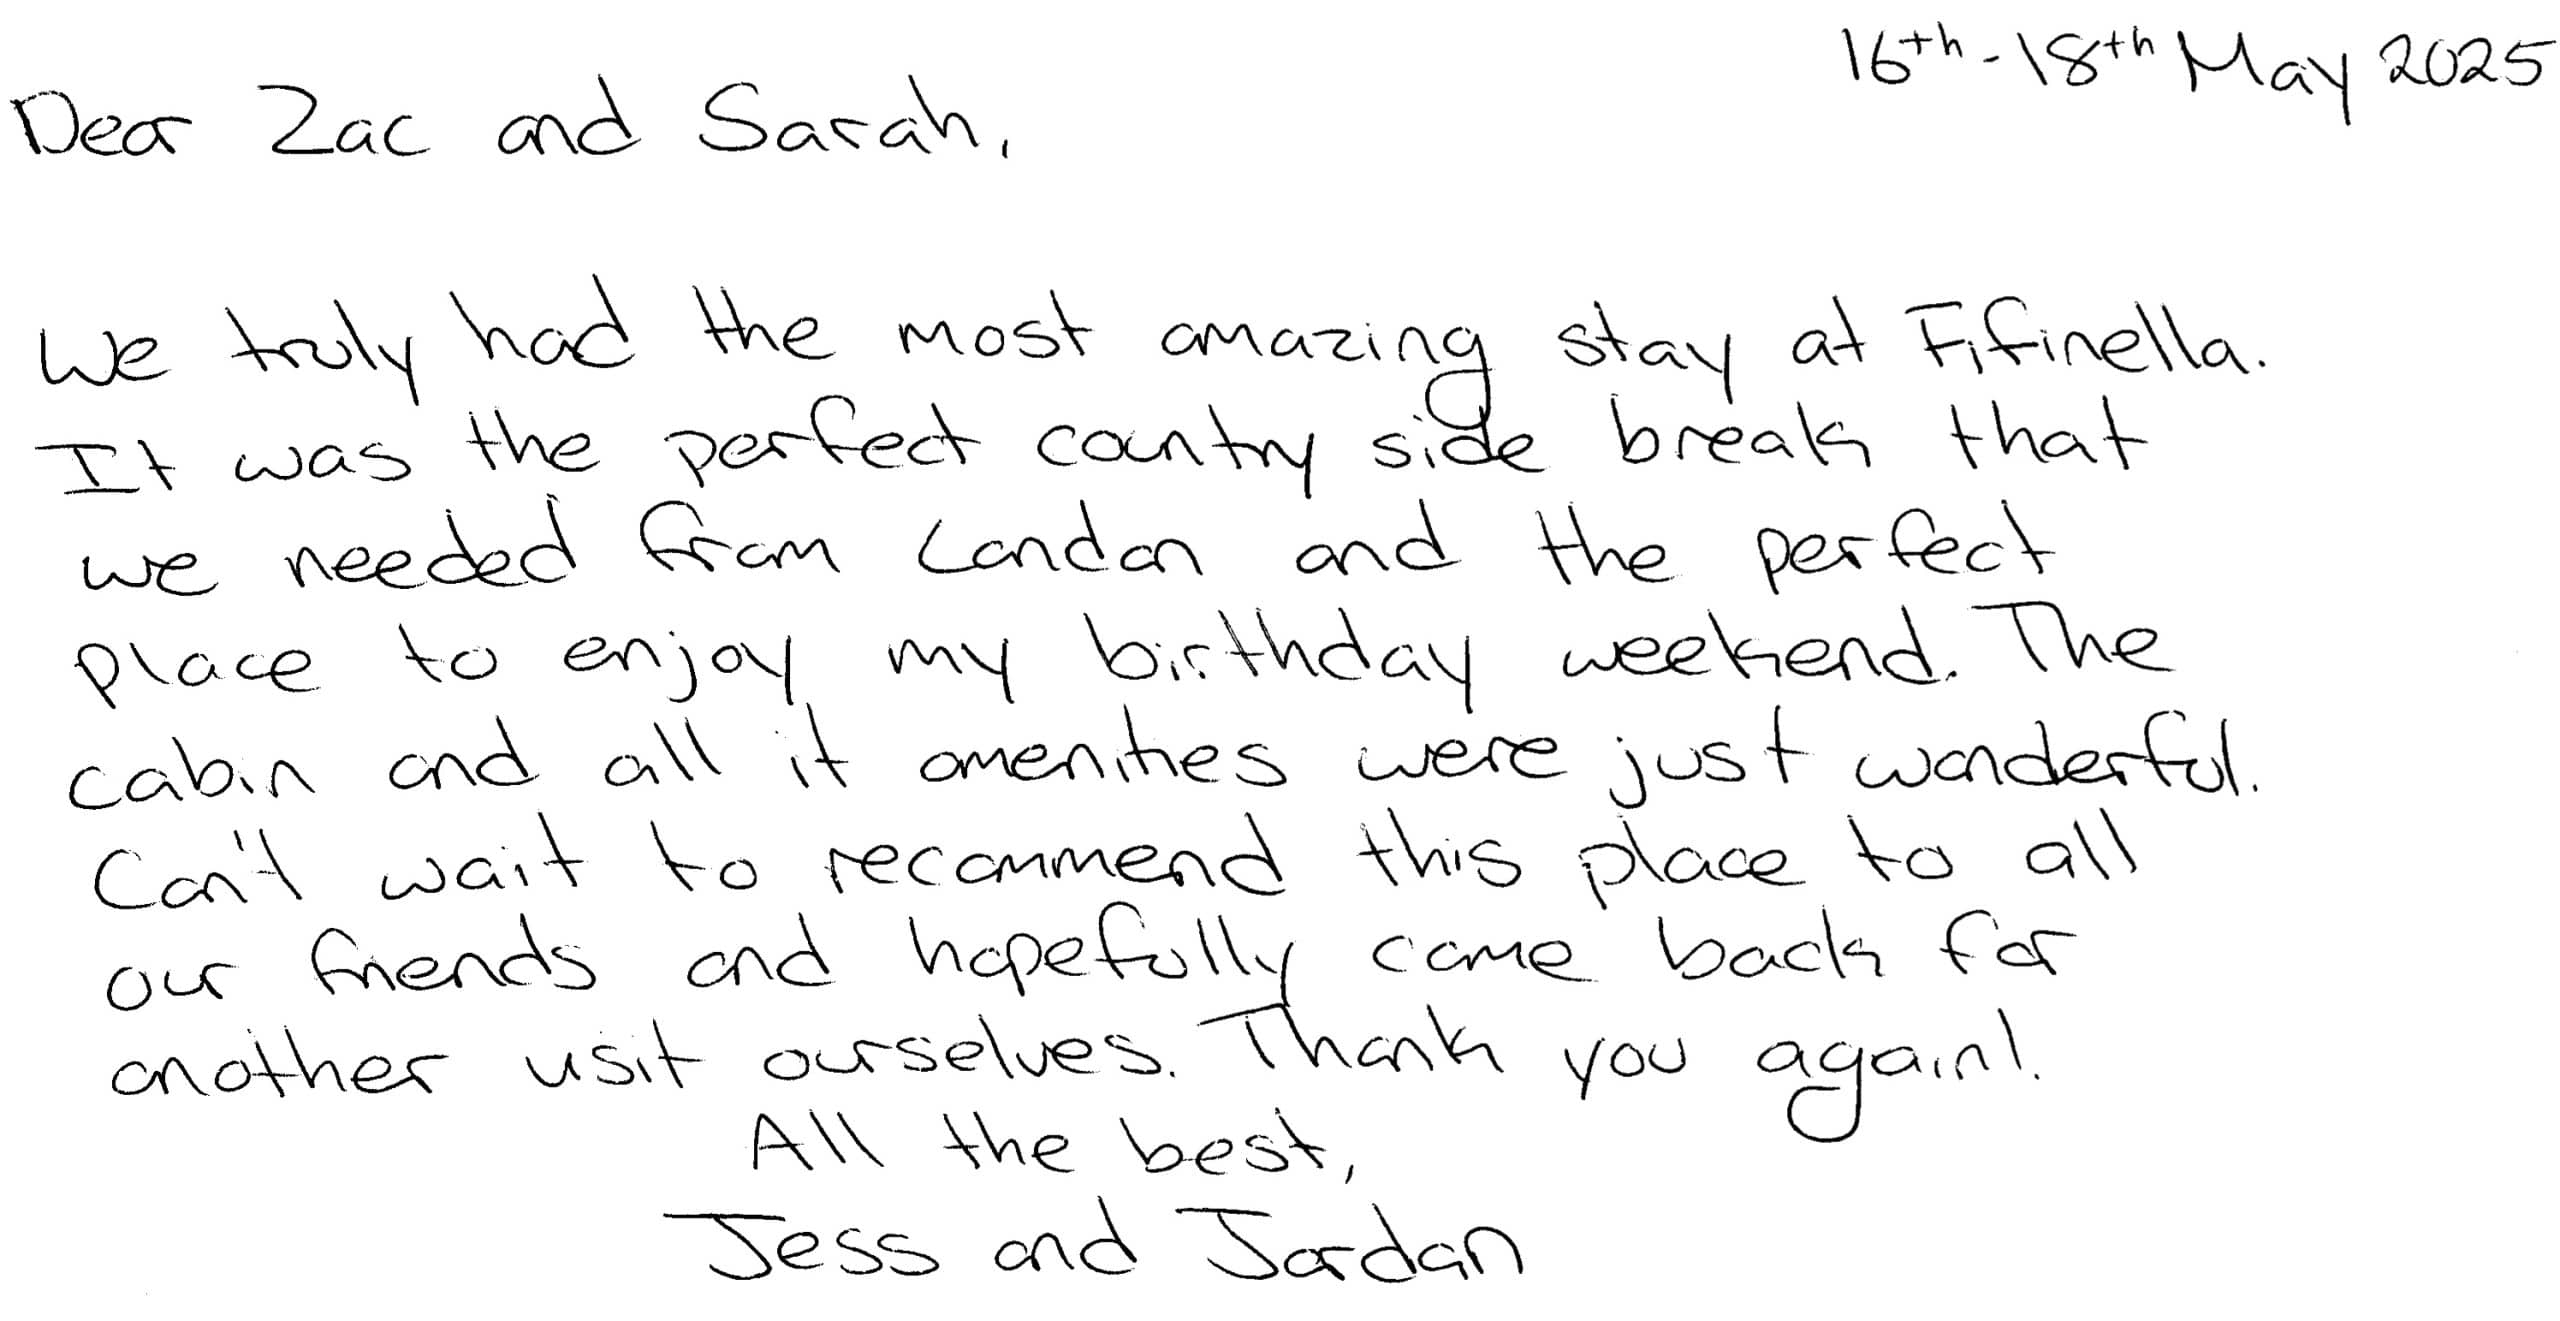 16th-18th May 2025
Dear Zac and Sarah,
We truly had the most amazing stay at Fifinella.
It was the perfect country side break that
we needed from London and the perfect
place to enjoy my birthday weekend. The
cabin and all it amenities were just wonderful.
Can't wait to recommend this place to all
our friends and hopefully come back for
another visit ourselves. Thank you again!
All the best,
Jess and Jordan